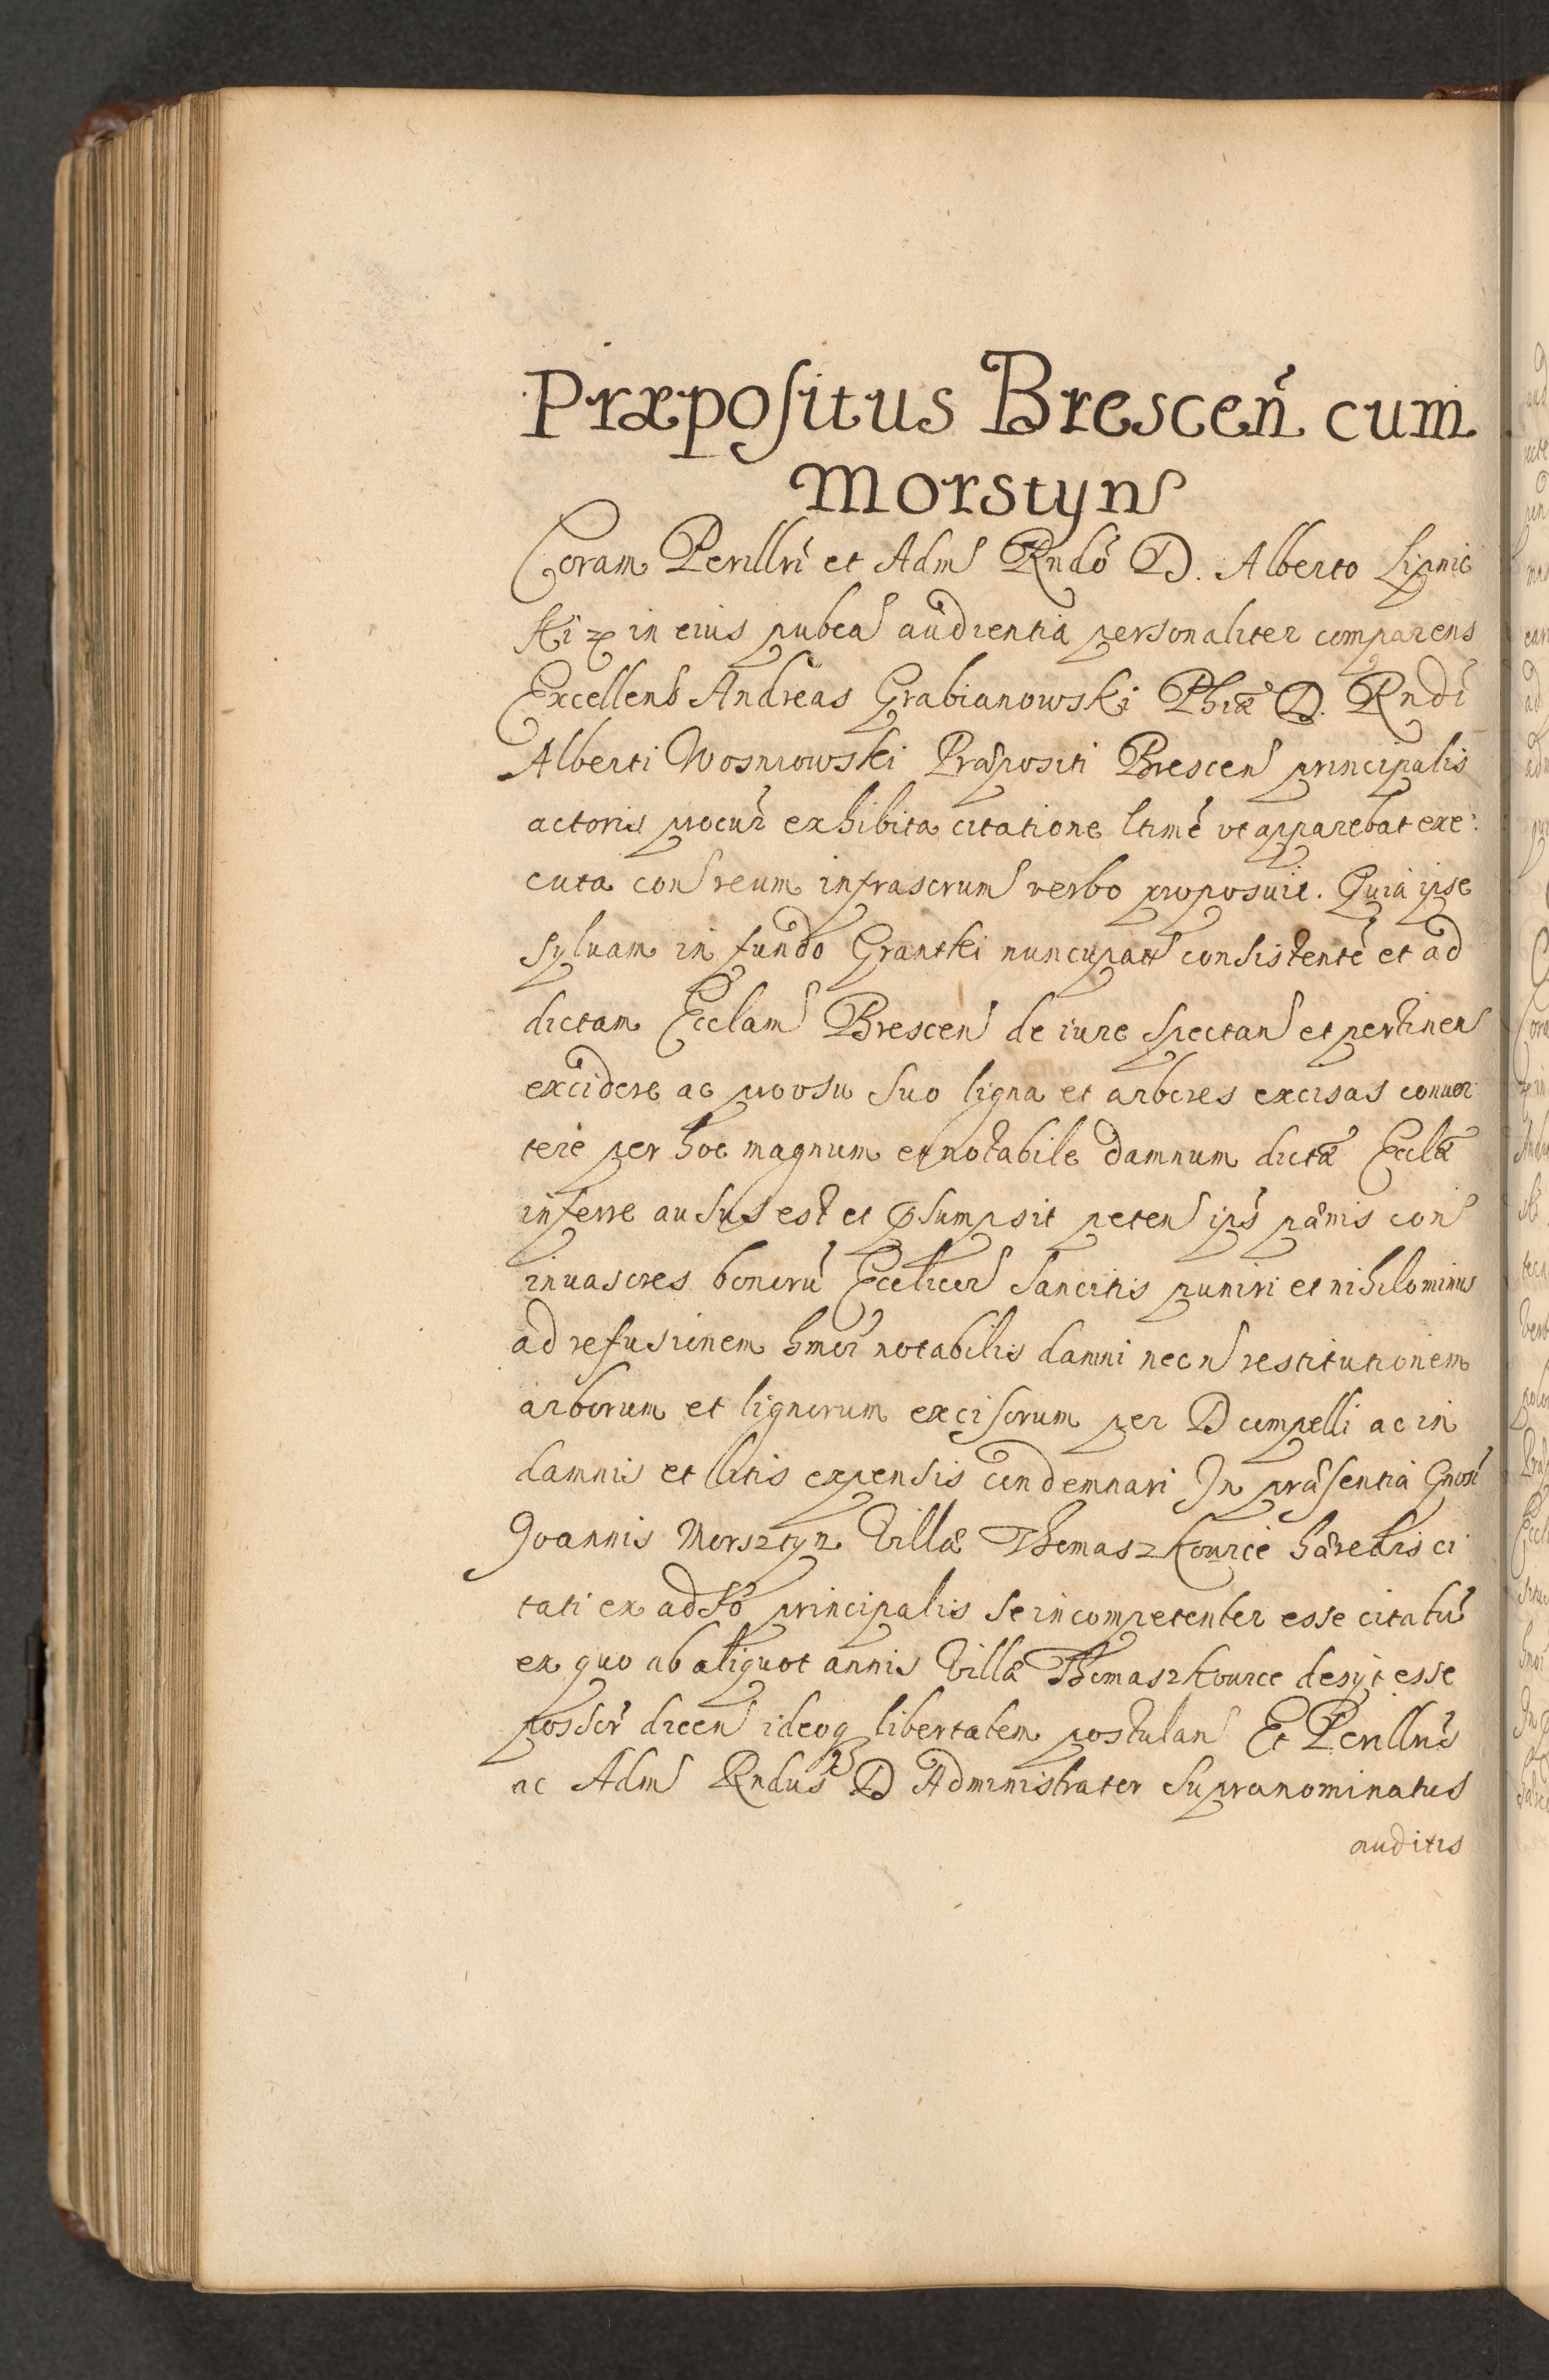 Præpositus Brescen̄ cum
Morstyn
Coram Perillri et Adm Rndo D. Alberto Lipnic
ki in eius pubca audientia personaliter comparens
Excellens Andreas Grabianowski Phiæ D. Rndi
Alberti Wosniowski Præpositi Brescen principalis
actoris procur exhibita citatione ltime ut apparebat exe:
cuta con reum infrascrum verbo proposuit. Quia ipse
syluam in fundo Grantki nuncupat consistente et ad
dictam Ecclam Brescen de iure spectan et pertinen
excidere ac pro vsu suo ligna et arbores excisas conuer
tere per hoc magnum et notabile damnum dictæ Ecclæ
inferre ausus est et psumpsit peten ips pænis con
inuasores bonoru Ecclicor sancitis puniri et nihilominus
ad refusionem hmoi notabilis damni necn restitutionem
arborum et lignorum excisorum per D compelli ac in
damnis et litis expensis condemnari In præsentia Gnosi
Joannis Morsztyn Villæ Thomaszkouice hæredis ci
tati ex adso principalis se incompetenter esse citatu
ex quo ab aliquot annis Villæ Thomaszkouice desijt esse
possor dicen ideoq libertatem postulan Et Perillris
ac Adm Rndus D Administrator supranominatus
auditis